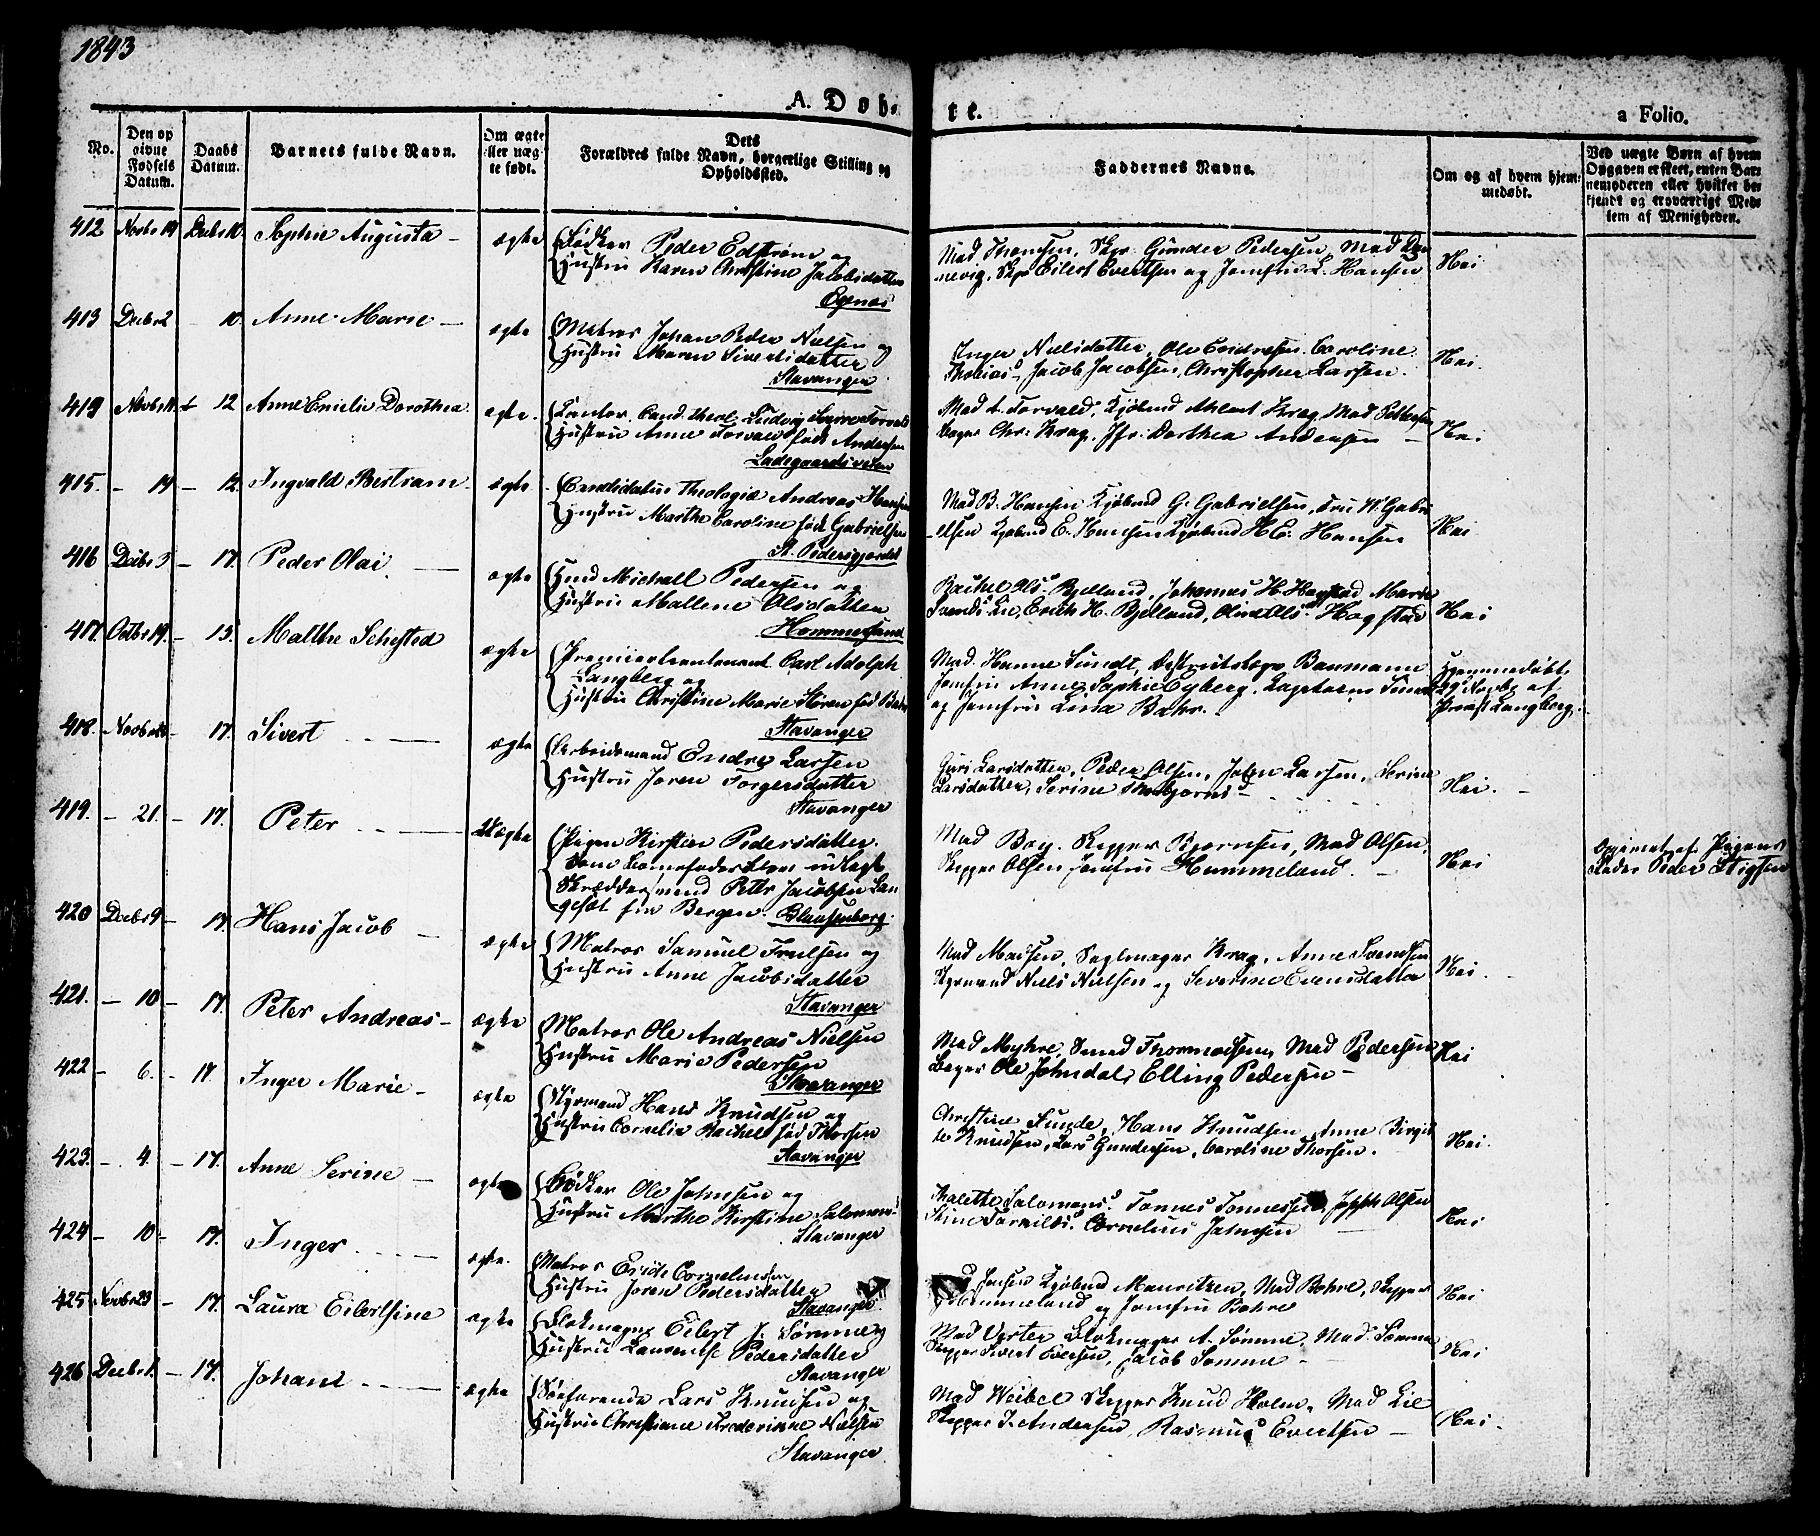 1843
A. Døb te.
a Folio.
No.
Den op
givne
Fødsels
Datum.
Daabs
Datum.
Barnets fulde Navn.
Om ægte
eller uæg-
te født.
Dets
Forældres fulde Navn, borgerlige Stilling og
Opholdssted.
Faddernes Navne.
Om og af hvem hjem-
medøbt.
Ved uægte Børn af hvem
Opgaven er skeet, enten Bar-
nemoderen eller hvilket be-
kjendt og troværdigt Med-
lem af Menigheden.
412 Novbr 14 Decbr 10. Sophie Augusta — ægte Bødker Peder Edstrøm og
Hustru Karen Christine Jacobsdatter
Egenæs
Mad Thomsen, Skpr. Gunder Pedersen, Mad Dan-
nevig, Skpr Eilert Evertsen og Jomfru L. Hansen Nei
413 Decbr 2 — 10. Anne Marie — ægte Matros Johan Peder Nielsen og
Hustru Maren Sivertsdatter
Stavanger
Inger Nielsdatter, Ole Endresen, Caroline
Thobias, Jacob Jacobsen, Christopher Larsen. Nei.
414 Novbr 12 Anne Emilie Dorothea. ægte. Kantor, Cand. theol. Ludvig Torvald
Hustru Anne Torvald født Andersen
Ladegaardsveien
Mad A. Torvald, Kjøbmd Ahlert Krag, Mad Pettersen
Bager Chr. Krag, Jfr. Dorthea Andersen — Nei
415. — 14 — 12. Ingvald Bertram — ægte Candidatus Theologiæ Andreas Hansen
Hustru Marthe Caroline født Gabrielsen
St. Pedersgjerdet
Mad B. Hansen Kjøbmd G. Gabrielsen, Fru W. Gabri-
elsen Kjøbmd E. Hansen Kjøbmd H. C. Hansen Nei
416 Decbr 3 — 17. Peder Olai — ægte Hmd Michell Pedersen og
Hustru Mallene Olsdatter
Hommersand
Rachel Ols. Bjelland, Johannes H. Hogstad, Marie
Svends Lie, Erich H. Bjelland, Olse Ols. Hogstad Nei
417 Octbr 19 — 15. Malthe Sehested ægte Premierlieutenant Carl Adolph
Langberg og
Hustru Christine Marie Støren fød Bahr
Stavanger
Mad. Hanne Sundt, Distriktslæge Baumann
Jomfru Anne Sophie Eyberg, Kaptein Sundt
og Jomfru Lina Bahr. Hjemmedøbt
Novbr af
Provst Langberg.
418. Novbr — 17. Sivert — ægte Arbeidsmand Endre Larsen
Hustru Joren Torgersdatter
Stavanger
Guri Larsdatter, Peder Olsen, John Larsen, Serine
Larsdatter, Serine Thorbjørns Nei.
419. — 21. — 17. Peter — Uægte Pigen Kirstien Pedersdatter.
Som Barnefader blev udlagt
Skreddersvend Peter Jacobsen Lan-
geset fra Bergen. Blausenborg.
Mad Boy. Skipper Bjørnsen, Mad Olsen,
Skipper Olsen Jomfru Hummeland. Nei
Opgivet af Pigens
Fader Peder Stigsen
420 Decbr 9 — 17. Hans Jacob — ægte Matros Samuel Truelsen og
Hustru Anne Jacobsdatter
Stavanger
Mad Madsen, Seglmager Krag, Anne Svendsen
Styrmand Niels Nielsen og Severine Evensdatter Nei.
421. — 10 — 17. Peter Andreas — ægte Matros Ole Andreas Nielsen
Hustru Marie Pedersen
Stavanger
Mad Myhre, Smed Thormodsen, Mad Pedersen
Bager Ole Johndal, Elling Pedersen — Nei
422 — 6. — 17. Inger Marie — ægte Styrmand Hans Knudsen og
Hustru Cornelia Rachel fød Thorsen
Stavanger
Christine Funde, Hans Knudsen, Anne Birgit-
te Knudsen, Lars Gundersen, Caroline Thorsen. Nei.
423. — 4. — 17. Anne Serine — ægte Bødker Ole Johnsen og
Hustru Marthe Kirstine Salomons
Stavanger
Thalette Salomons, Tønnes Tønnessen, Joseph Olsen
Stine Torkilds. Cornelius Johnsen — Nei
424 — 10 — 17. Inger — ægte. Matros Erich Cornelius
Hustru Joren Pedersdatter
Stavanger
Jensen Kjøbmd Mauritzen, Mad Bahre, Skipper
Hummeland og Jomfru Bahre Nei
425 Novbr 23 — 17. Laura Eilertsine ægte Blokmager Eilert J. Sømme og
Hustru Laurentse Pedersdatter
Stavanger
Mad Verster Blokmager A. Sømme, Mad. Sømme
Skipper Sivert Eversen, Jacob Sømme — Nei
426 Decbr 1. — 17. Johan — ægte Søefarende Lars Knudsen og
Hustru Christiane Frederikke Nielsen
Stavanger
Mad Weibel Skipper Knud Holm, Mad Lie
Skipper J. Andersen, Rasmus Evertsen — Nei.